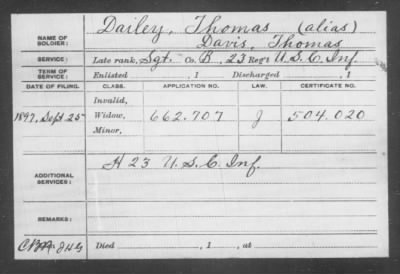 NAME OF SOLDIER: Dailey, Thomas (alias)
Davis, Thomas
SERVICE: Late rank, Sgt. Co. B, 23 Reg't U.S.C. Inf.
TERM OF SERVICE: Enlisted , 1 Discharged , 1
DATE OF FILING. CLASS. APPLICATION NO. LAW. CERTIFICATE NO.
Invalid,
1897, Sept 25 Widow, 662.707 J 504.020
Minor,
ADDITIONAL SERVICES: H 23 U.S.C. Inf.
REMARKS:
Died , 1 , at